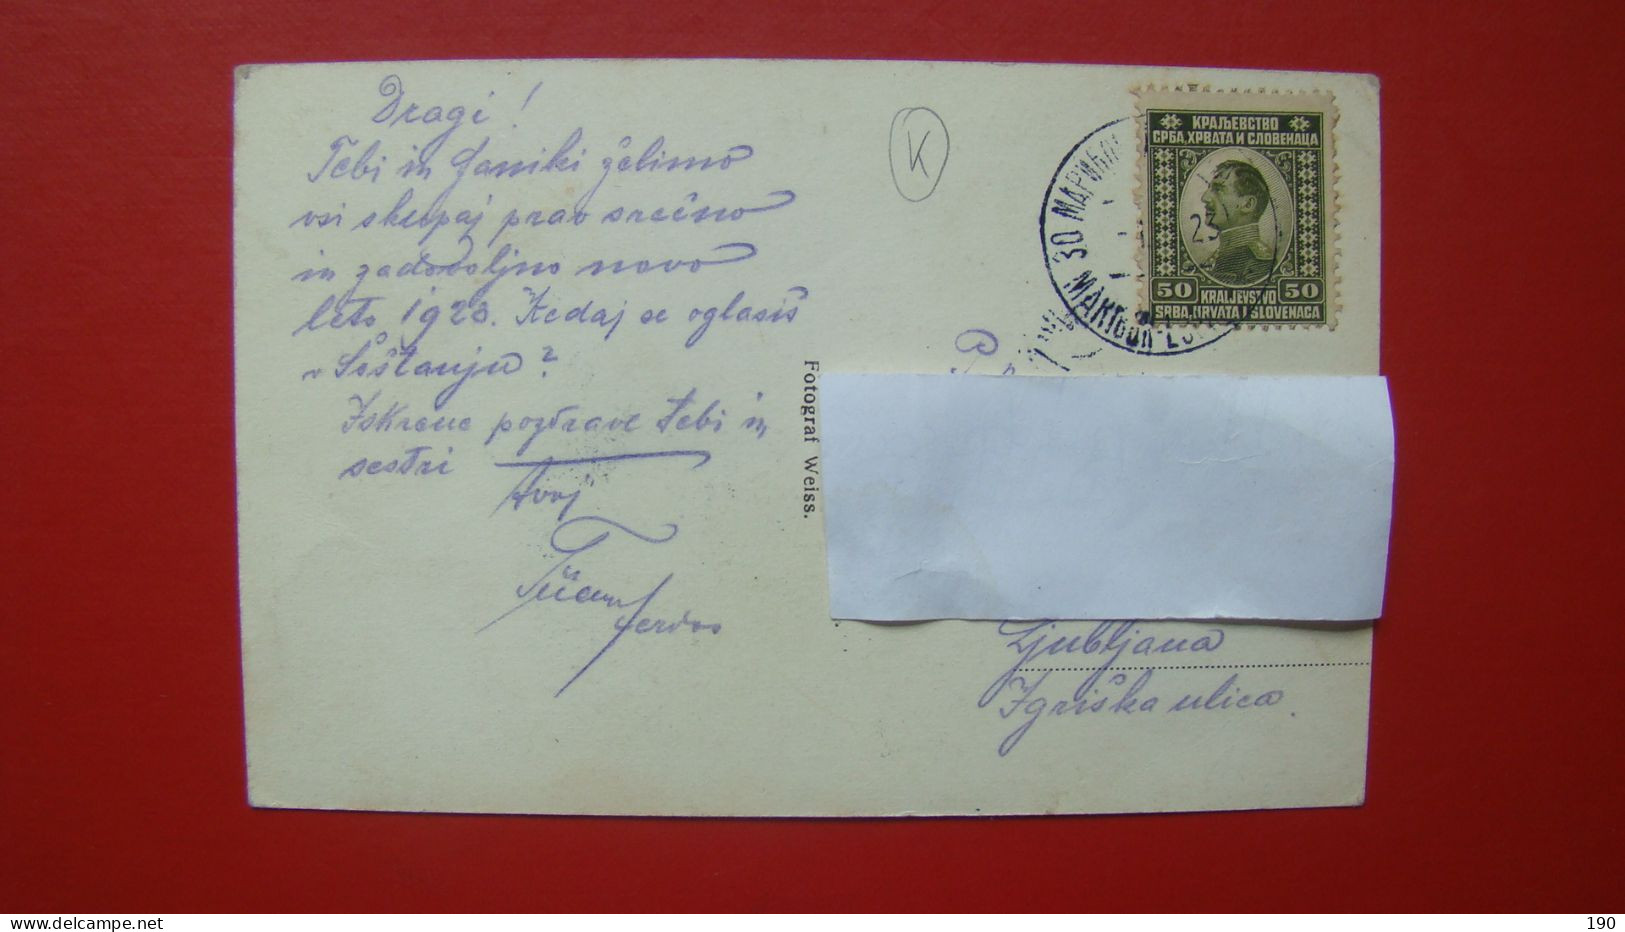 Dragi!
Tebi in Janiki želimo
vsi skupaj prav srečno
in zadovoljno novo
leto 1923. Kedaj se oglasiš
v Šoštanju?
Iskrene pozdrave Tebi in
sestri
Tvoj
Fotograf Weiss.
K
КРАЉЕВСТВО
СРБА, ХРВАТА И СЛОВЕНАЦА
50 KRALJEVSTVO 50
SRBA, HRVATA I SLOVENACA
30 МАРИБО
23
MARIBOR-LJ
Ljubljana
Igriška ulica.
190